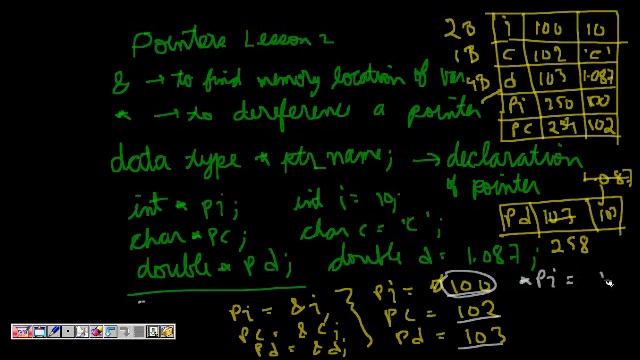 Pointers Lesson 2
& → to find memory location of var
* → to dereference a pointer
data type * ptr_name; → declaration of pointer
int * pi; int i = 10;
char * pc; char c = 'c';
double * pd; double d = 1.087;
pi = &i;
pc = &c;
pd = &d;
pi = 100
pc = 102
pd = 103
*pi =
2B i 100 10
1B c 102 'c'
4B d 103 1.087
pi 250 100
pc 254 102
1.087
pd 107 107
258